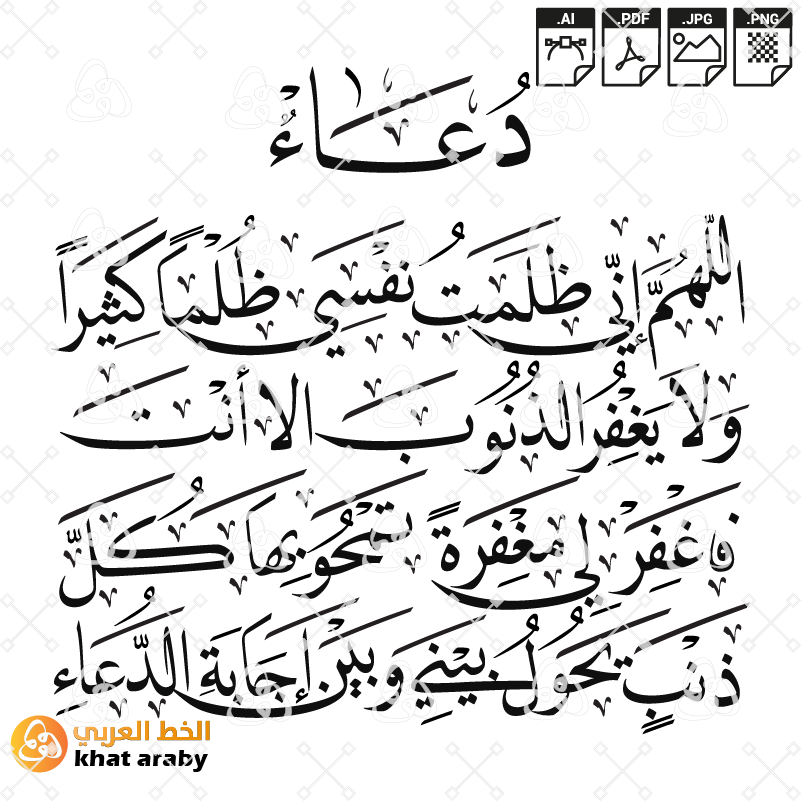 .AI .PDF .JPG .PNG
دُعَاءٌ
اللَّهُمَّ إِنِّي ظَلَمْتُ نَفْسِي ظُلْمًا كَثِيرًا
وَلَا يَغْفِرُ الذُّنُوبَ الا أَنْتَ
فاغْفِرْ لِي مَغْفِرَةً تَمْحُو بِهَا كُلَّ
ذَنْبٍ يَحُولُ بَيْنِي وَبَيْنَ إِجَابَةِ الدُّعَاءِ
الخط العربي
khat araby